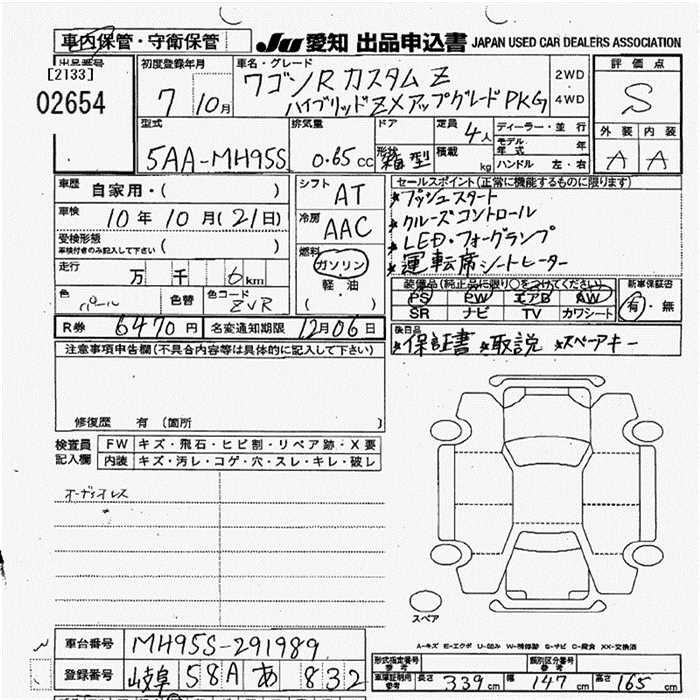 車内保管・守衛保管
JU 愛知 出品申込書 JAPAN USED CAR DEALERS ASSOCIATION
出品番号
[2133]
02654
初度登録年月
7 10月
車名・グレード
ワゴンR カスタム Z
ハイブリッド ZXアップグレード PKG
2WD
4WD
評価点
S
外装 内装
A A
型式
5AA-MH95S
排気量
0.65 cc
ドア
形状
箱型
定員
4人
積載
kg
ディーラー・並行
モデル年式 年
ハンドル 左・右
車歴
自家用・( )
車検
10年 10月 (21日)
受検形態
車検付きのみ記入して下さい ( )
走行
万 千 6 km
色
パール
色替
色コード
ZVR
シフト
AT
冷房
AAC
燃料
ガソリン
軽・油
( )
セールスポイント(正常に機能するものに限ります)
*プッシュスタート
*クルーズコントロール
*LED・フォグランプ
*運転席シートヒーター
装備品(純正品に限り○をつけてください)
PS PW エアB AW
SR ナビ TV カワシート
新車保証書
有・無
R券 6470円 名変通知期限 12月06日
後日品
*保証書 *取説 *スペアキー
注意事項申告欄(不具合内容等は具体的に記入して下さい)
修復歴 有 (箇所 )
検査員記入欄
FW キズ・飛石・ヒビ割・リペア跡・X要
内装 キズ・汚レ・コゲ・穴・スレ・キレ・破レ
オーディオレス
スペア
A-キズ E-エクボ U-凹み W-補修跡 S-サビ C-腐食 XX-交換済
車台番号 MH95S-291989
登録番号 岐阜 58A あ 832
形式指定番号 参考
類別区分番号 参考
車庫証明用参考 長さ 339 cm 幅 147 cm 高さ 165 cm